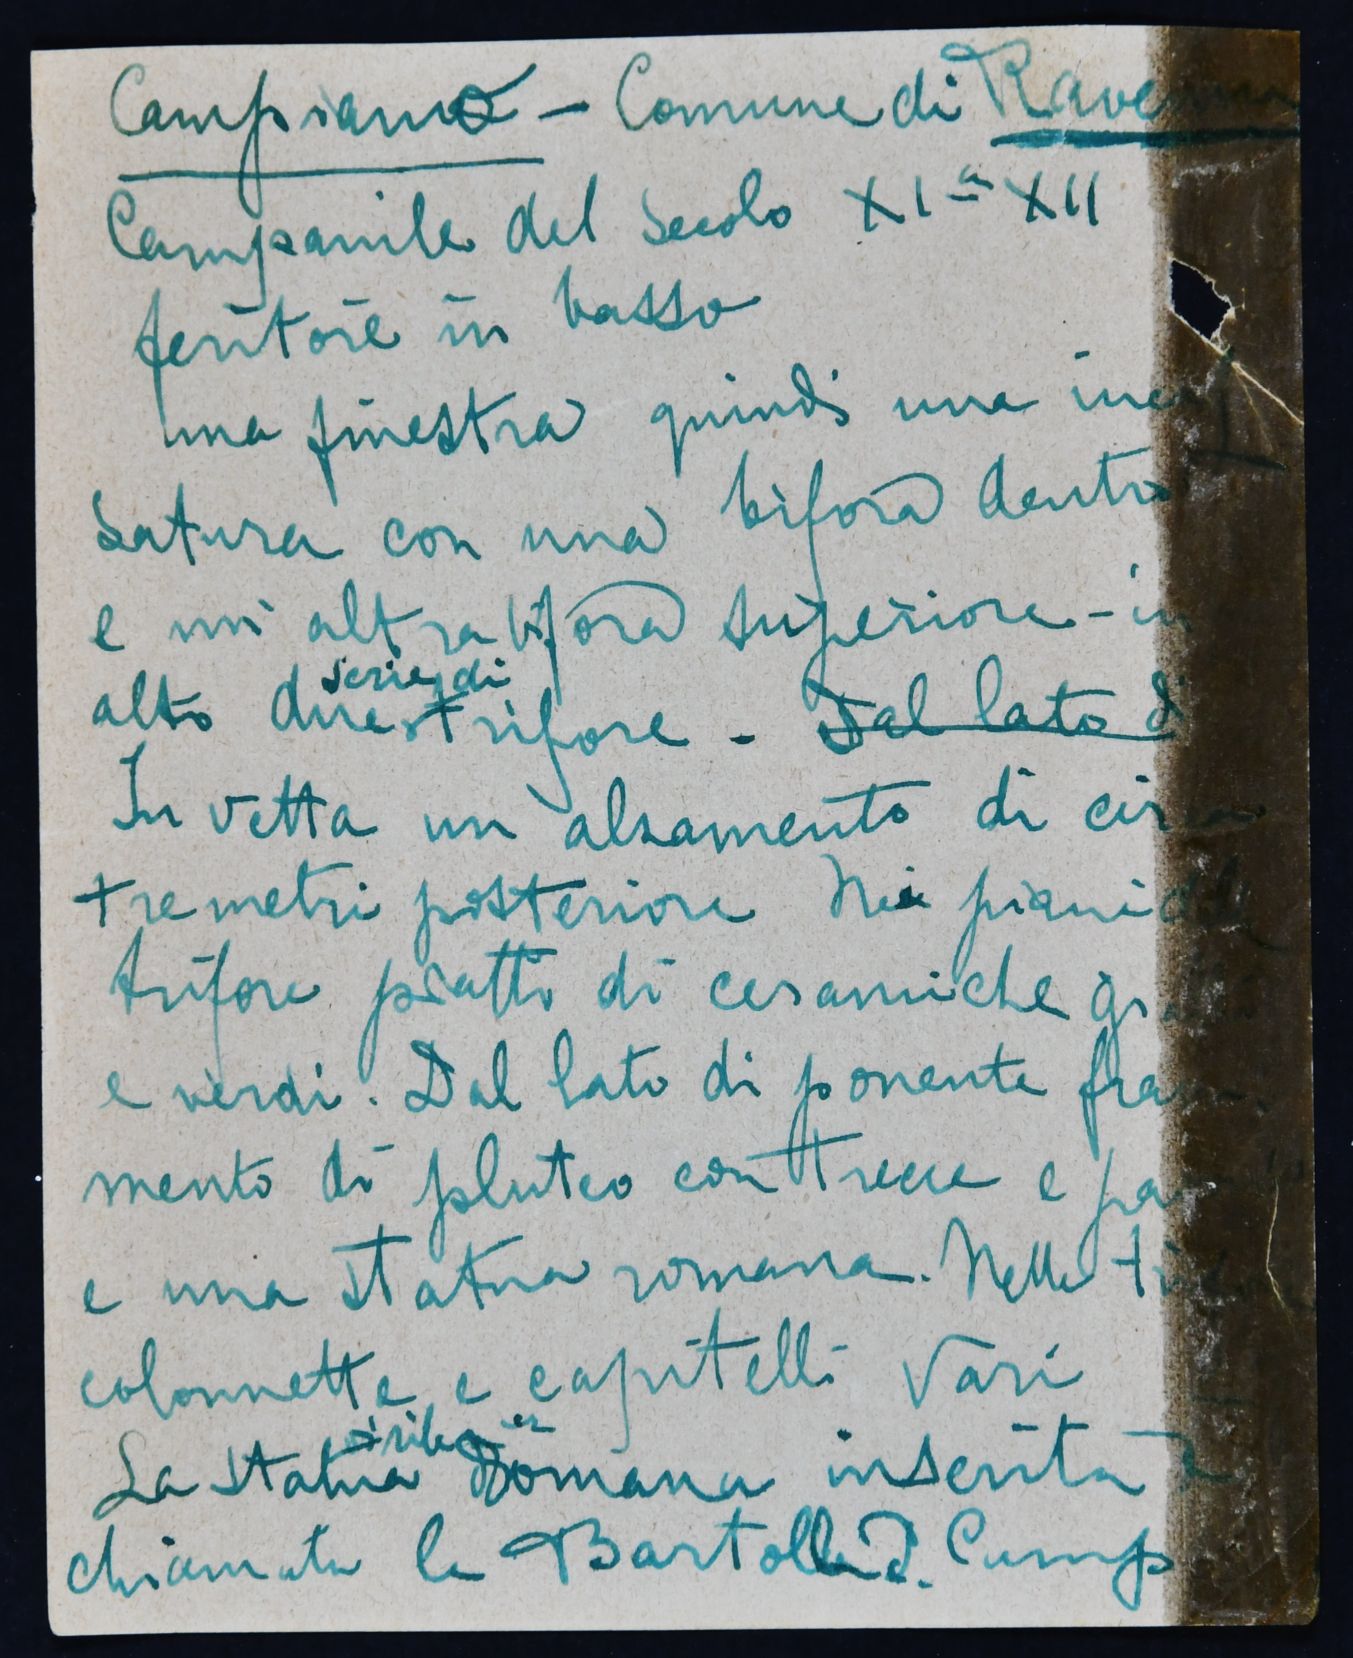 Campiano - Comune di Ravenna
Campanile del secolo XI a XII
feritoie in basso
una finestra quindi una incas
satura con una bifora dentro
e un'altra bifora superiore - in
alto due serie di trifore - Dal lato di
In vetta un alzamento di circa
tre metri posteriore Nei piani delle
trifore piatti di ceramiche gialle
e verdi. Dal lato di ponente fram-
mento di pluteo con trecce e
e una statua romana. Nelle trifore
colonnette e capitelli vari
La statua virile romana inserita è
chiamata la Bartolla d. Camp